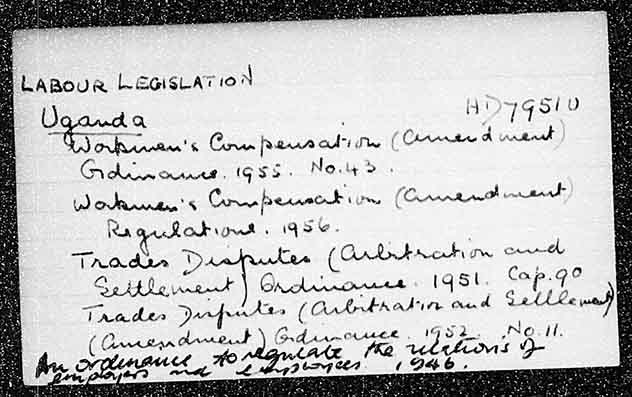 LABOUR LEGISLATION
HD7951U
Uganda
Workmen's Compensation (Amendment)
Ordinance. 1955. No.43.
Workmen's Compensation (Amendment)
Regulations. 1956.
Trades Disputes (Arbitration and
Settlement) Ordinance. 1951. Cap.90
Trades Disputes (Arbitration and Settlement)
(Amendment) Ordinance. 1952. No.11.
An ordinance to regulate the relations of
employers and employees. 1946.